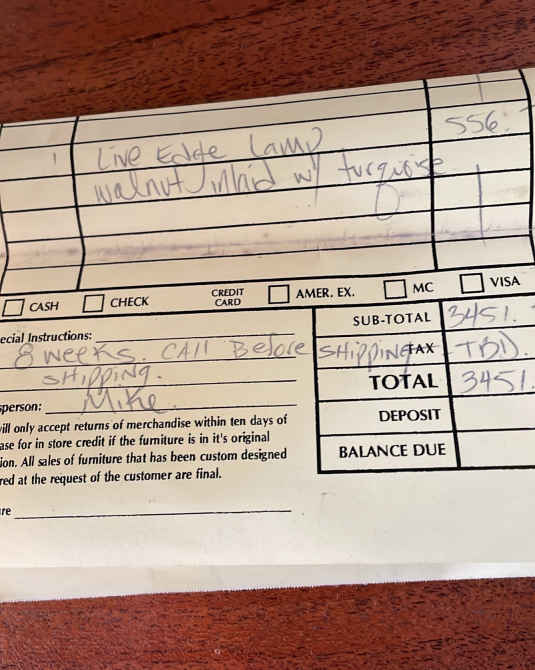 556.
1 Live Edge Lamp
walnut inlaid w/ turquoise
CASH CHECK CREDIT CARD AMER. EX. MC VISA
SUB-TOTAL 3451.
ecial Instructions:
8 weeks. CAll Before shipping TAX TBD.
SHipping.
TOTAL 3451.
sperson: Mike.
DEPOSIT
ill only accept returns of merchandise within ten days of
ase for in store credit if the furniture is in it's original
BALANCE DUE
ion. All sales of furniture that has been custom designed
red at the request of the customer are final.
re